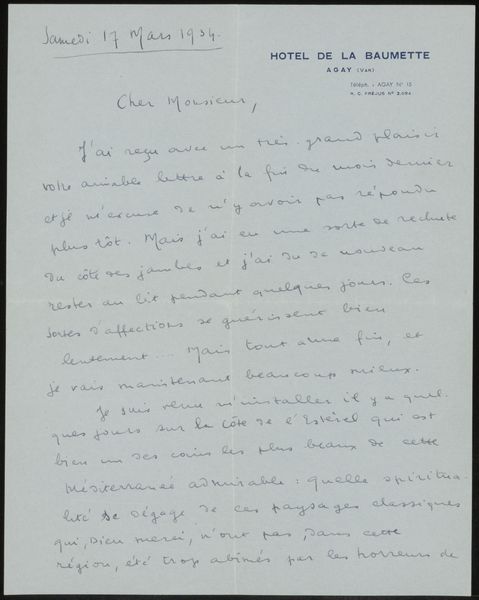 Samedi 17 Mars 1934.
HOTEL DE LA BAUMETTE
AGAY (VAR)
Téléph. : AGAY Nº 15
R. C. FRÉJUS Nº 2.094
Cher Monsieur,
J'ai reçu avec un très grand plaisir
votre aimable lettre à la fin du mois dernier
et je m'excuse de n'y avoir pas répondu
plus tôt. Mais j'ai eu une sorte de rechute
du côté des jambes et j'ai dû de nouveau
rester au lit pendant quelques jours. Ces
sortes d'affections se guérissent bien
lentement... Mais tout a une fin, et
je vais maintenant beaucoup mieux.
Je suis venu m'installer il y a quel-
ques jours sur la côte de l'Estérel qui est
bien un des coins les plus beaux de cette
Méditerranée admirable : quelle spiritua-
lité se dégage de ces paysages classiques
qui, Dieu merci, n'ont pas, dans cette
région, été trop abîmés par les horreurs de